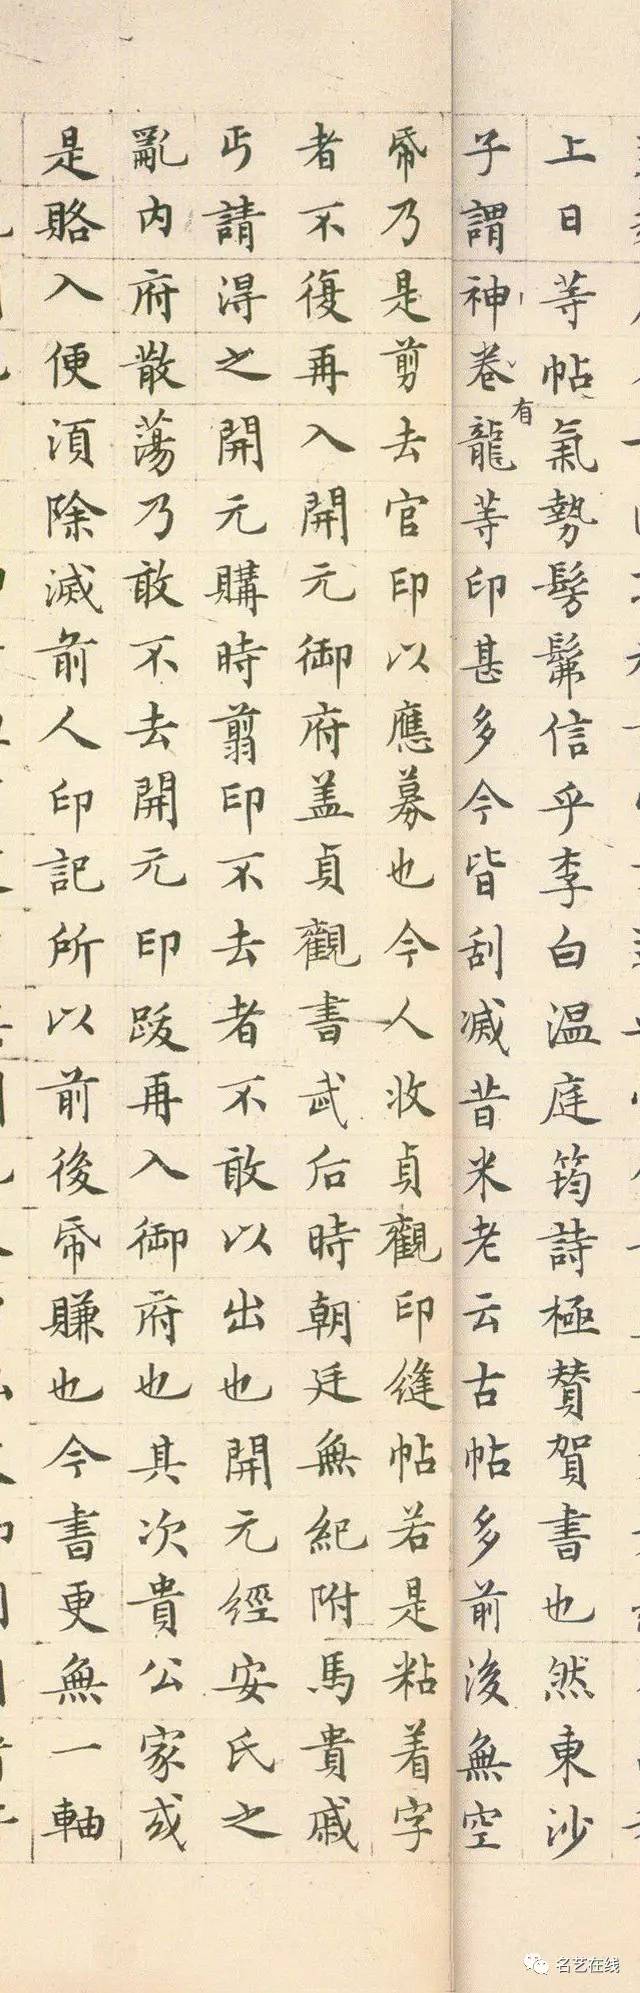 上日等帖氣勢髣髴信乎李白温庭筠詩極贊賀書也然東沙
子謂神卷有龍等印甚多今皆刮滅昔米老云古帖多前後無空
帋乃是剪去官印以應募也今人收貞觀印縫帖若是粘着字
者不復再入開元御府蓋貞觀書武后時朝廷無紀附馬貴戚
丐請得之開元購時翦印不去者不敢以出也開元經安氏之
亂内府散蕩乃敢不去開元印跋再入御府也其次貴公家或
是賂入便須除滅前人印記所以前後帋賺也今書更無一軸
名艺在线